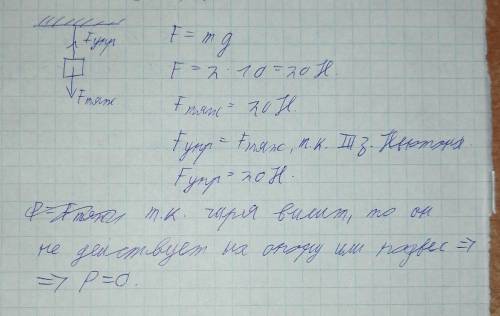 Fупр
F = mg
F = 2 · 10 = 20 Н.
Fтяж
Fтяж = 20 Н.
Fупр = Fтяж, т.к. III з. Ньютона.
Fупр = 20 Н.
т.к. гиря висит, то он
не действует на опору или подвес =>
=> P = 0.